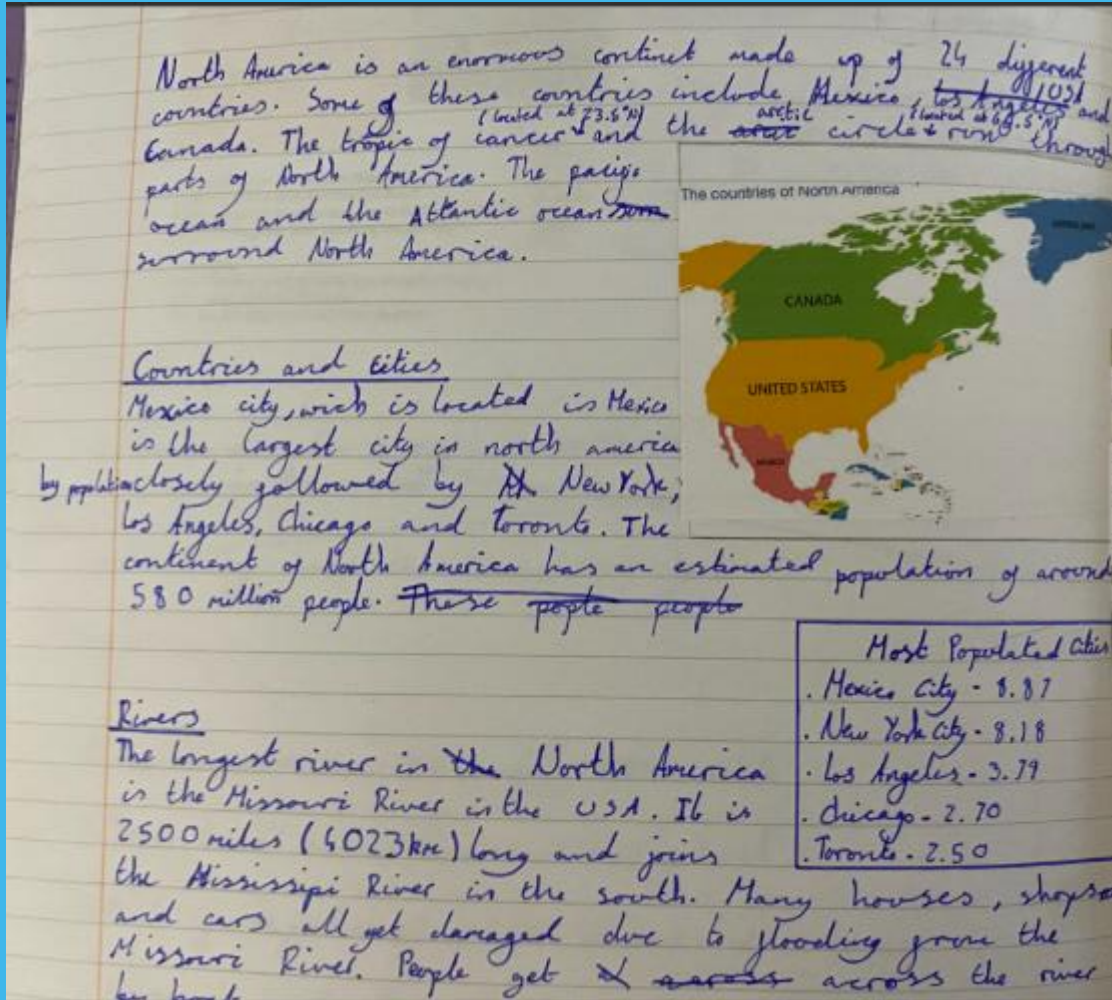 North America is an enormous continet made up of 24 different
countries. Some of these countries include Mexico, Los Angeles USA and
Canada. The tropic of cancer (located at 23.5°N) and the arctic circle (located at 6 .5°N) run through
parts of North America. The pacific
ocean and the Atlantic ocean
surround North America.
The countries of North America
CANADA
UNITED STATES
MEXICO
Countries and cities
Mexico city, wich is located in Mexico
is the largest city in north america
by population closely followed by New York,
Los Angeles, Chicago and Toronto. The
continent of North America has an estimated population of around
580 million people. These pople people
Most Populated Cities
. Mexico City - 8.87
. New York City - 8.18
. Los Angeles - 3.79
. Chicago - 2.70
. Toronto - 2.50
Rivers
The longest river in the North America
is the Missouri River in the USA. It is
2500 miles (4023km) long and joins
the Mississipi River in the south. Many houses, shops
and cars all get damaged due to flooding from the
Missouri River. People get across across the river